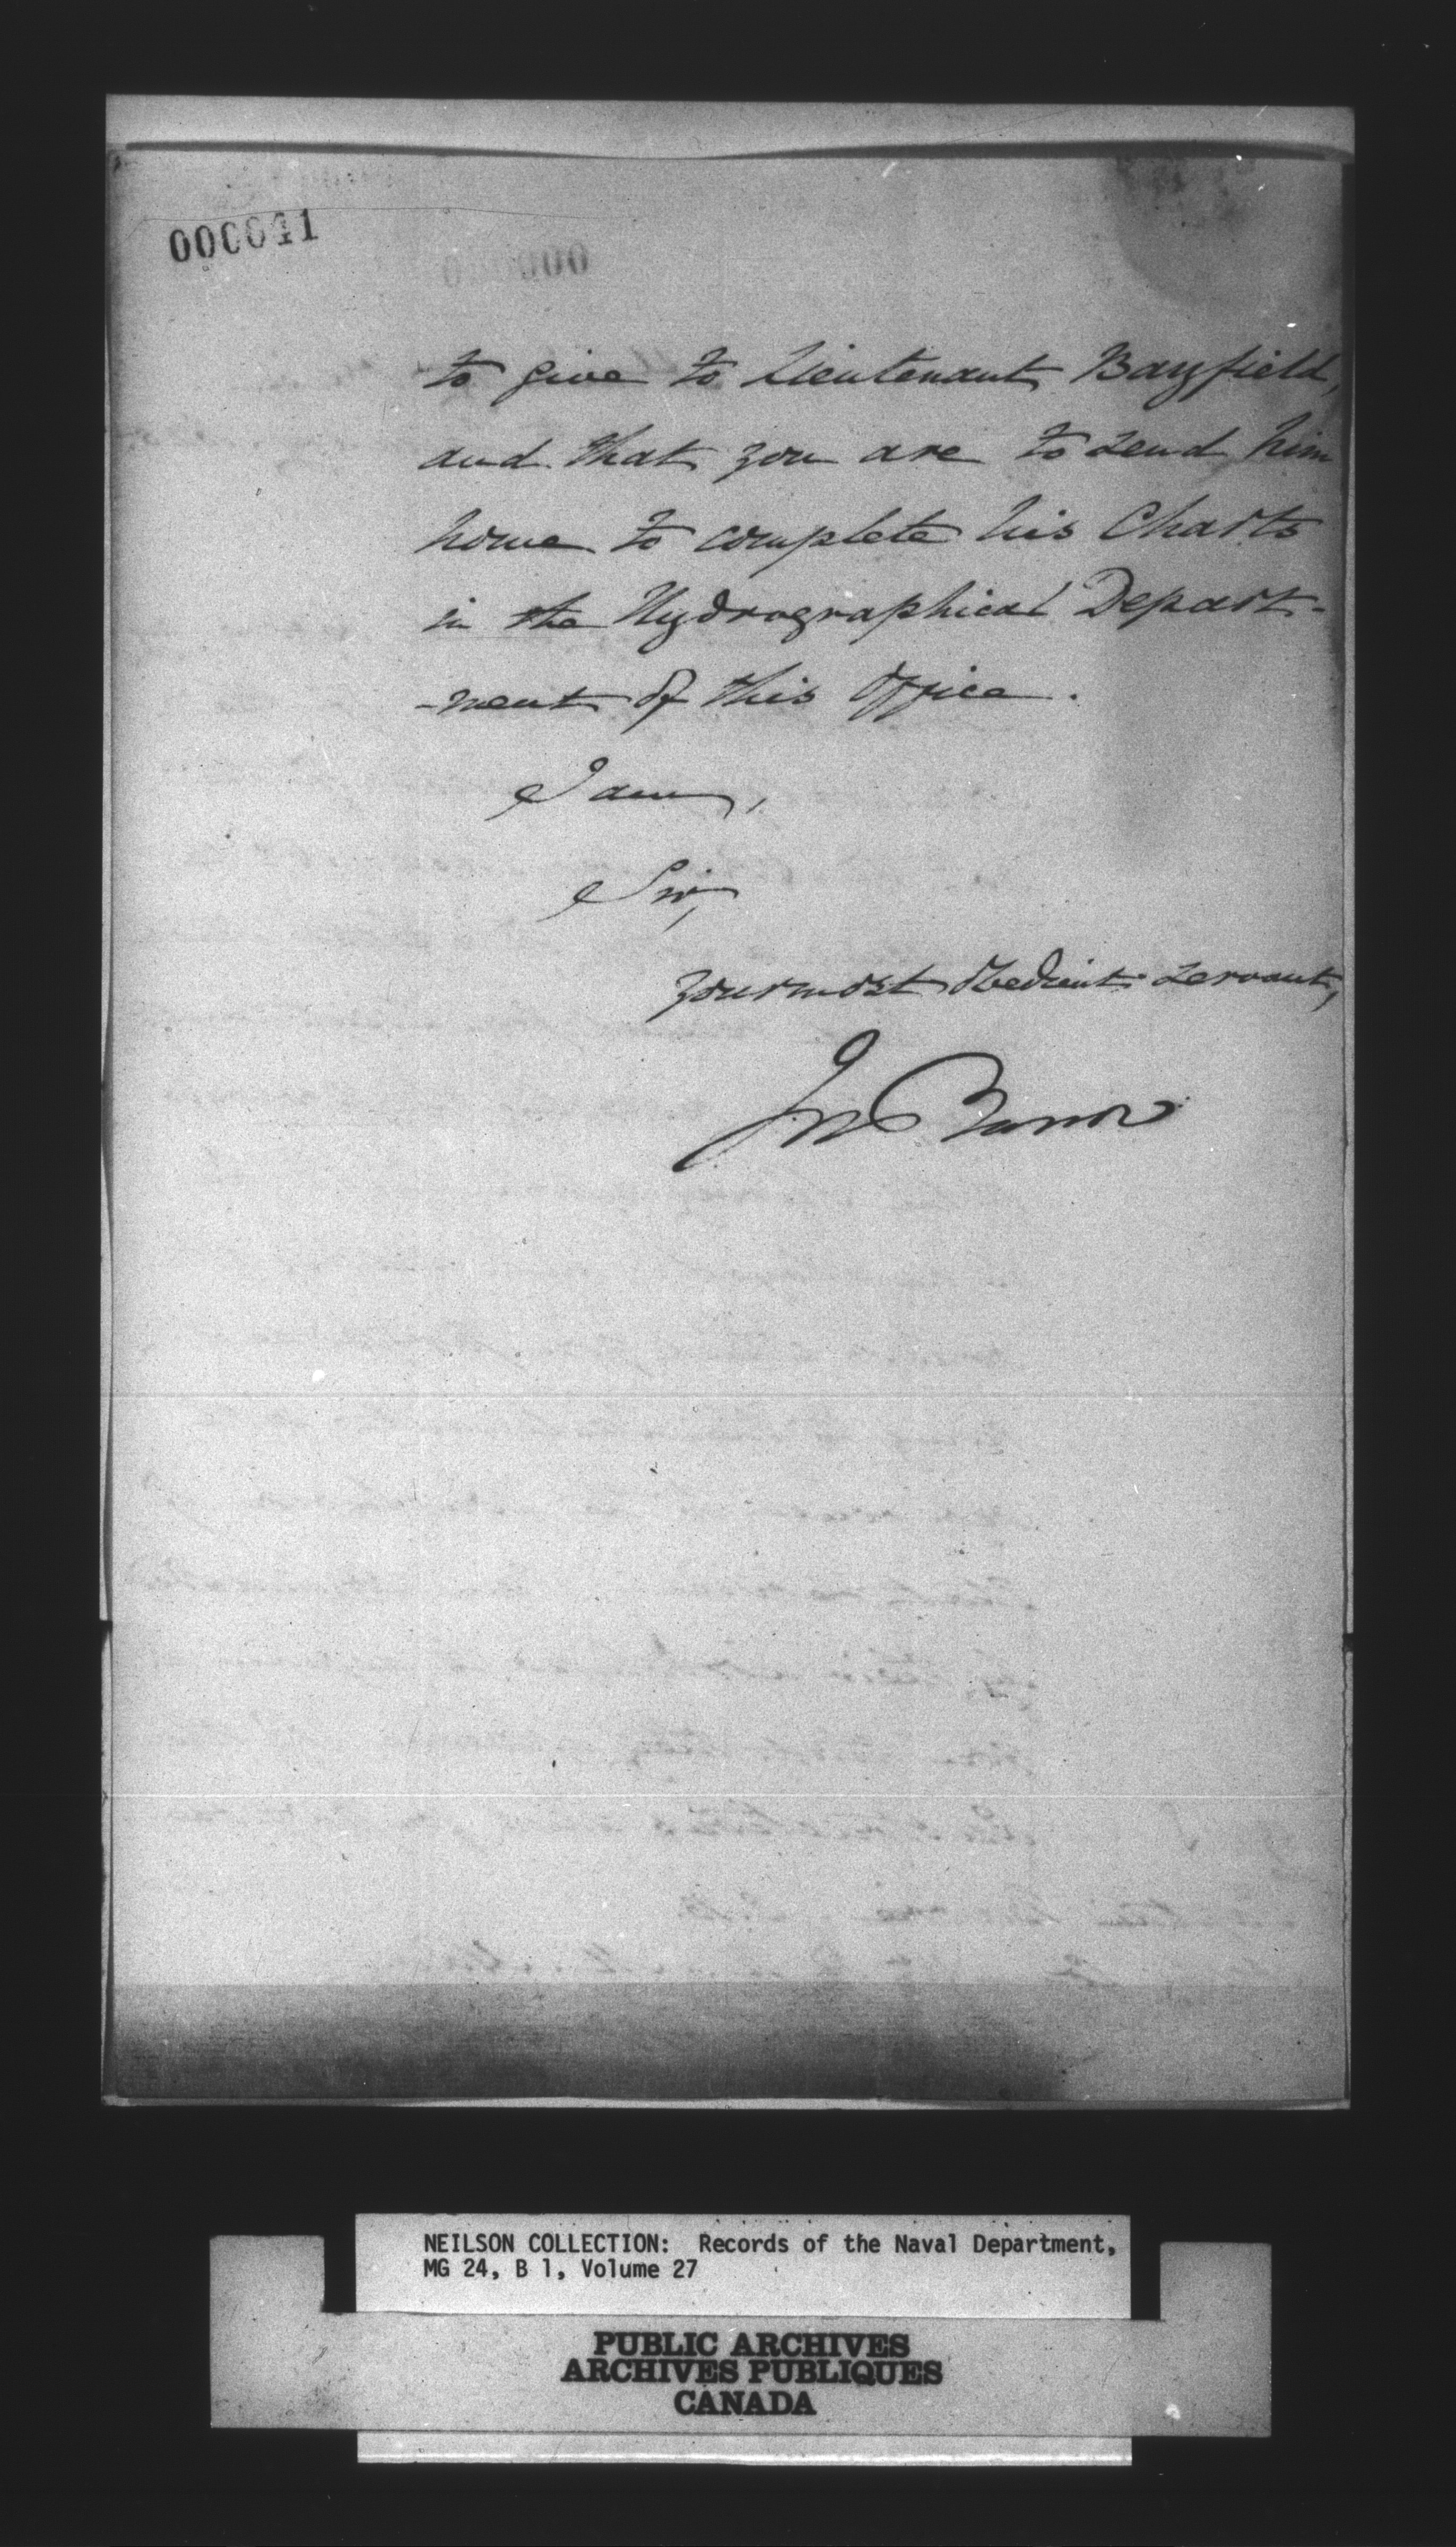 000041
to give to Lieutenant Bayfield,
and that you are to send him
home to complete his Charts
in the Hydrographical Depart-
-ment of this Office.
I am,
Sir,
your most obedient servant,
Jn Barrow
NEILSON COLLECTION: Records of the Naval Department,
MG 24, B 1, Volume 27
PUBLIC ARCHIVES
ARCHIVES PUBLIQUES
CANADA